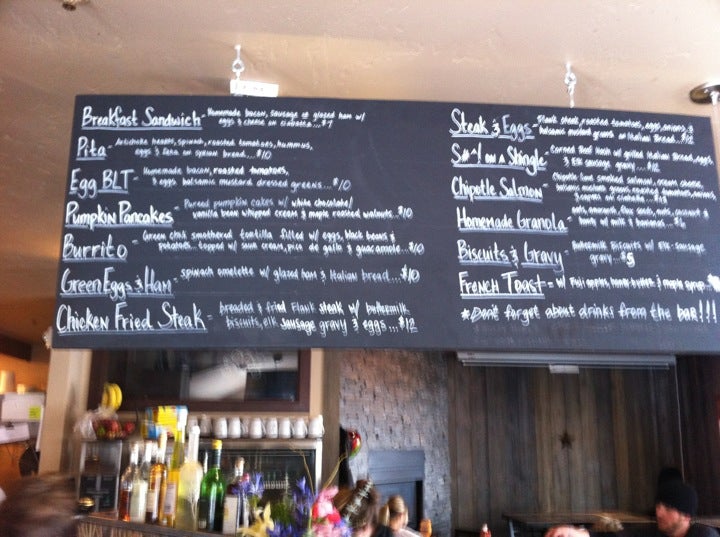 Breakfast Sandwich - Homemade bacon, sausage or glazed ham w/
eggs & cheese on ciabatta...$7
Pita - Artichoke hearts, spinach, roasted tomatoes, hummus,
eggs & feta on syrian bread...$10
Egg BLT - Homemade bacon, roasted tomatoes,
& eggs balsamic mustard dressed greens...$10
Pumpkin Pancakes - Pureed pumpkin cakes w/ white chocolate/
vanilla bean whipped cream & maple roasted walnuts...$10
Burrito - Green chili smothered tortilla filled w/ eggs, black beans &
potatoes...topped w/ sour cream, pico de gallo & guacamole...$10
Green Eggs & Ham - spinach omelette w/ glazed ham & Italian bread...$10
Chicken Fried Steak - breaded & fried Flank steak w/ buttermilk
biscuits, elk sausage gravy & eggs...$12
Steak & Eggs - Flank steak, roasted tomatoes, eggs, onions &
balsamic mustard greens on Italian Bread...$12
S#*! on a Shingle - Corned Beef Hash w/ grilled Italian Bread, eggs,
& Elk sausage gravy...$12
Chipotle Salmon - Chipotle lime smoked salmon, cream cheese,
balsamic mustard greens, roasted tomatoes, onions,
& capers on ciabatta
Homemade Granola - oats, almonds, flax seeds, nuts, coconut &
honey w/ milk & bananas...$6
Biscuits & Gravy - Buttermilk Biscuits w/ Elk-sausage
gravy...$5
French Toast - w/ Fuji apples, honey butter & maple syrup
*Don't forget about drinks from the bar!!!